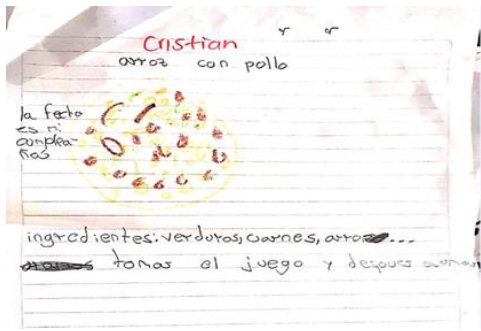 r r
Cristian
arroz con pollo
la fecto
es mi
conplea-
ños
ingredientes: verduras, carnes, arroz...
tomas el juego y despues